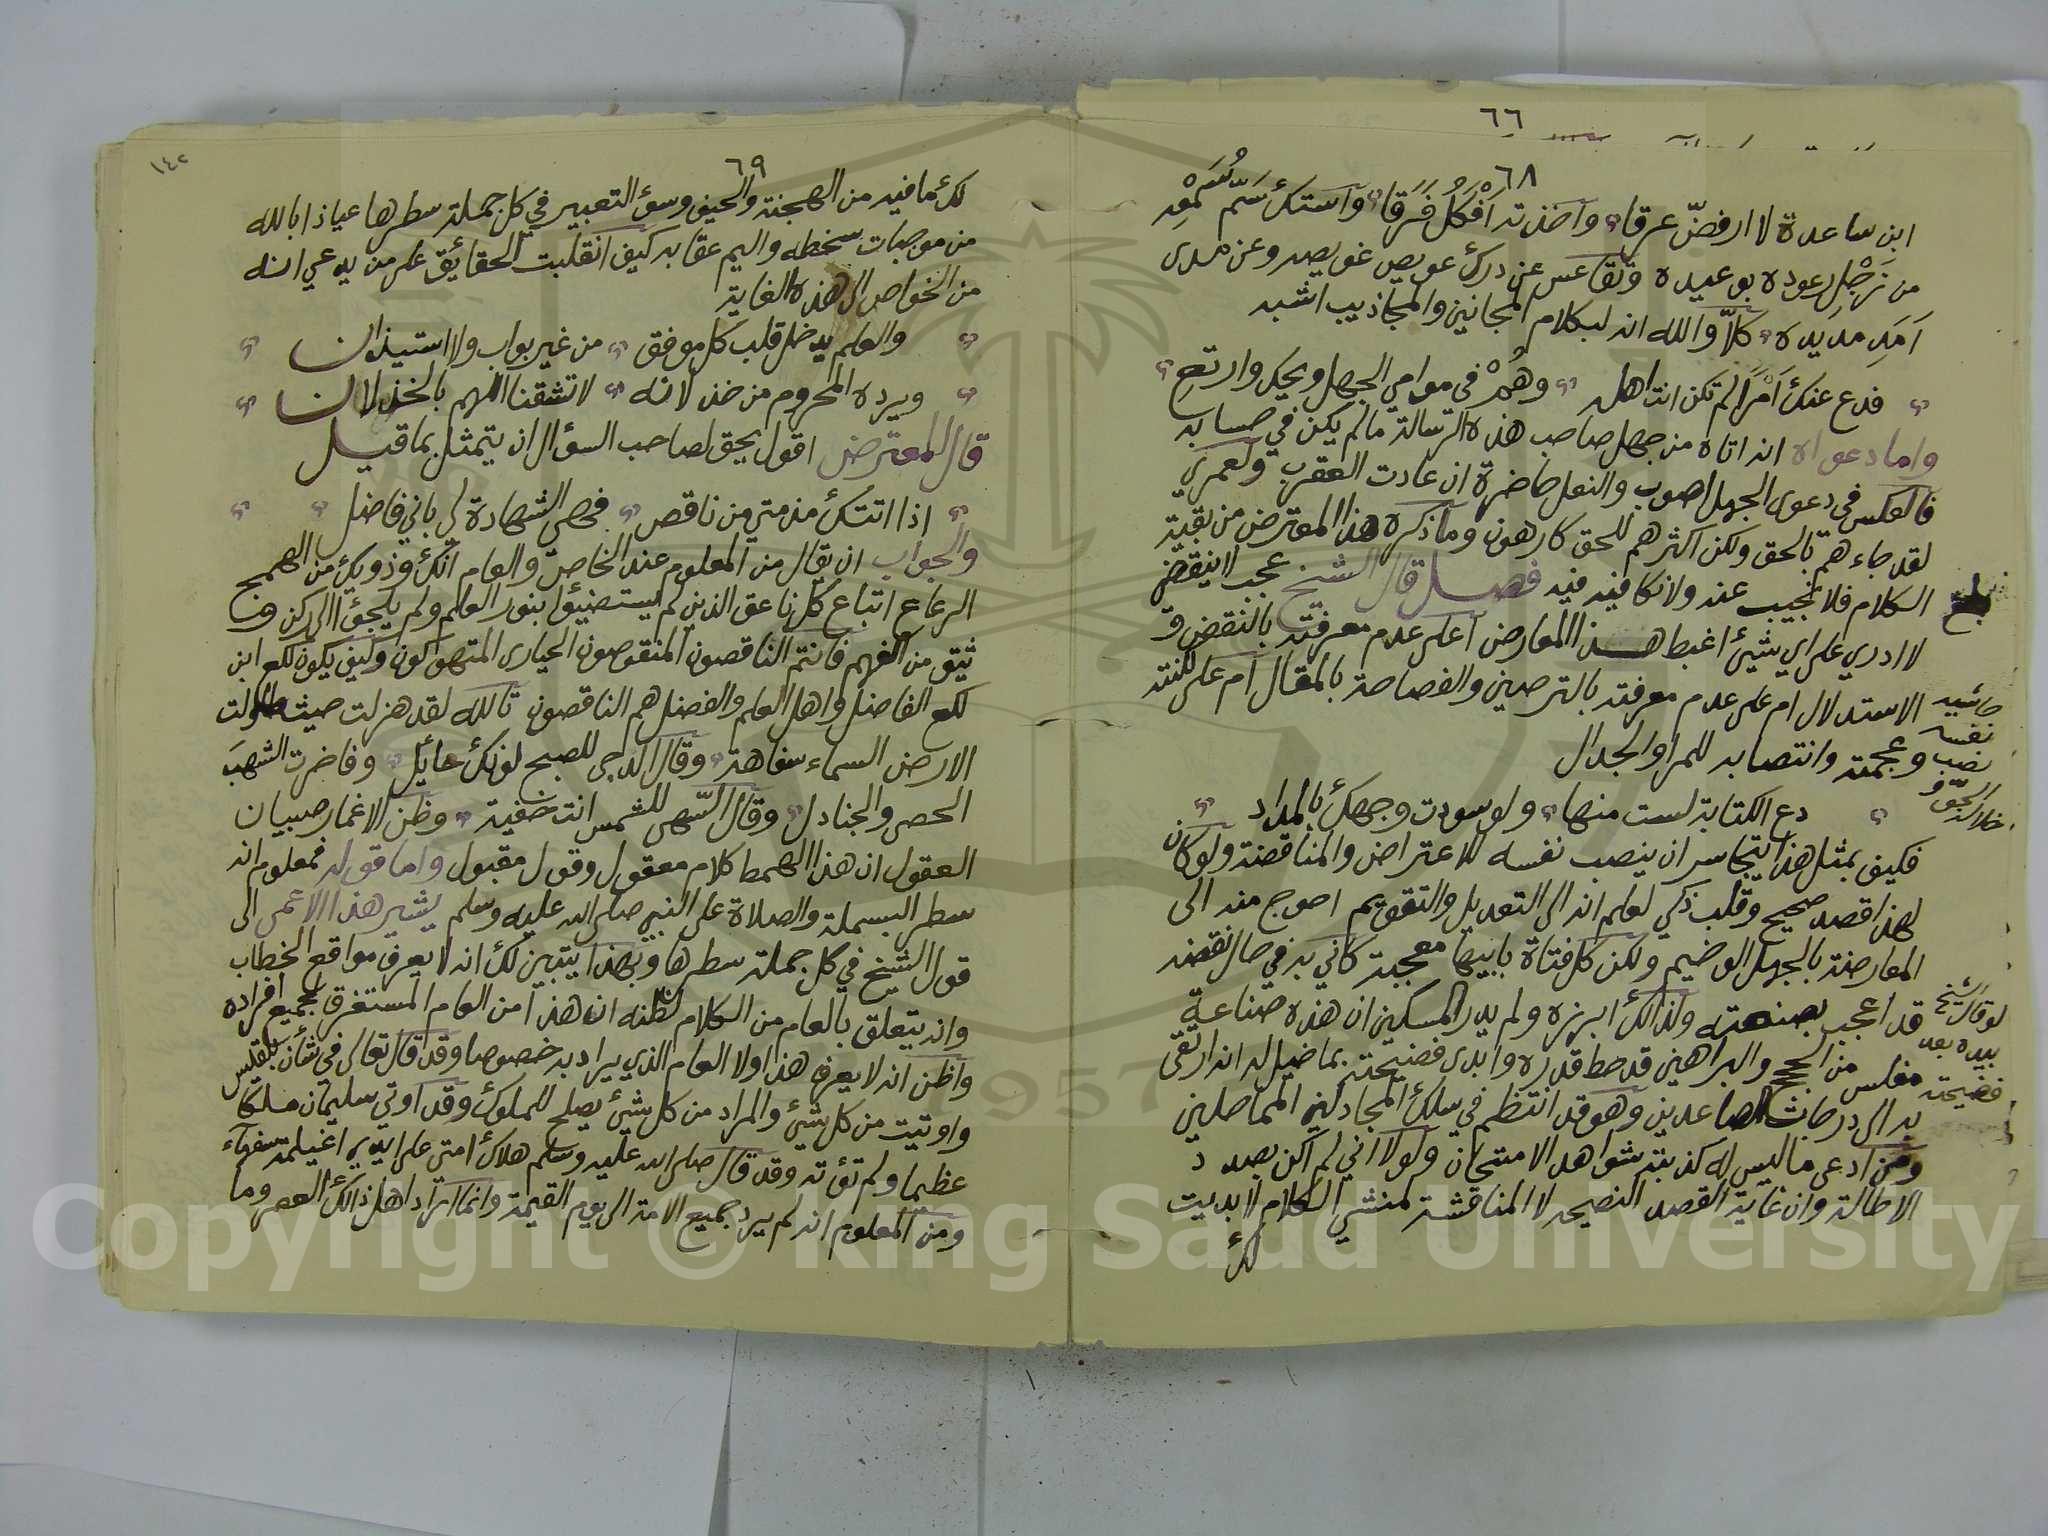 ٦٦
٦٨
ابن ساعدة لا ارفضّ عرقا واخذته اَفْكَلُ فَرَقا واستكّ سَمّ سُمعه
من زَجَل رعوده بوعيده وتقاعس عن درك عويص غويصه وعن مدى
اَمَدِ مديده كلّا والله انه لبكلام المجانين والمجاذيب اشبه
فدع عنك اَمْراً لم تكن انت اهله وهُمْ في موامي الجهل ويحك وارتع
واما دعواه انه اتاه من جهل صاحب هذه الرسالة مالم يكن في حسابه
فالعكس في دعوى الجهل اصوب والنعل حاضرة ان عادت العقرب ولعمري
لقد جاءهم بالحق ولكن اكثرهم للحق كارهون وما ذكره هذا المعترض من بقية
الكلام فلا نجيب عنه ولا نكافيه فيه فصل قال الشيخ عجب لا ينقضي
لا ادري على اي شيئ اغبط هذا المعارض أعلى عدم معرفته بالنقض و
الاستدلال ام على عدم معرفته بالترصين والفصاحة بالمقال ام على لكنته
وعجمته وانتصابه للمرا والجدال
حاشيه
نفسه
نصب
خلاف الحق و
دع الكتابة لست منها ولو سودت وجهك بالمداد
فكيف بمثل هذا يتجاسر ان ينصب نفسه للاعتراض والمناقضة ولو كان
لهذا قصد صحيح وقلب ذكي لعلم انه الى التعديل والتقويم احوج منه الى
المعارضة بالجهل الوخيم ولكن كل فتاة بابيها معجبة كاني به في حال نقضه
قد اعجب بصنعته ولذالك ابرزه ولم يدر المسكين ان هذه صناعة
مفلس من الحجج والبراهين قد حط قدره وابدى فضيحته بما خيل له انه ارتقى
لو قال الشيخ
بيده بعد
فضيحته
به الى درجات الصاعدين وهو قد انتظم في سلك المجادلين المماحلين
ومن ادعى ما ليس له كذبته شواهد الامتحان ولولا اني لم اكن بصدد
الاطالة وان غاية القصد النصيحه لا المناقشة لمنشي الكلام لابديت
لك
١٤٢
٦٩
لك ما فيه من الهجنة والحيف وسوئ التعبير في كل جملة سطرها عياذا بالله
من موجبات سخطه واليم عقابه كيف انقلبت الحقائق على من يدعي انه
من الخواص الى هذه الغاية
والعلم يدخل قلب كل موفق من غير بواب ولا استيذان
ويرده المحروم من خذلانه لا تشقنا اللهم بالخذلان
قال المعترض اقول يحق لصاحب السؤال ان يتمثل بما قيل
اذا اتتك مذمتي من ناقص فهي الشهادة لي باني فاضل
والجواب ان يقال من المعلوم عند الخاص والعام انك وذويك من الهمج
الرعاع اتباع كل ناعق الذين لم يستضيئوا بنور العلم ولم يلجئوا الى ركن و
ثيق من الفهم فانتم الناقصون المنقوصون الحيارى المتهوكون وكيف يكون لكع ابن
لكع الفاضل واهل العلم والفضل هم الناقصون تالله لقد هزلت حيث طاولت
الارض السماء سفاهة وقال الدجى للصبح لونك حائل وفاخرت الشهبَ
الحصى والجنادل وقال السّهى للشمس انت خفية وظن الاغمار صبيان
العقول ان هذا الهمط كلام معقول وقول مقبول واما قوله فمعلوم انه
سطر البسملة والصلاة على النبي صلى الله عليه وسلم يشير هذا الاعمى الى
قول الشيخ في كل جملة سطرها وبهذا يتبين لك انه لا يعرف مواقع الخطاب
وانه يتعلق بالعام من الكلام لظنه ان هذا من العام المستغرق لجميع افراده
واظن انه لا يعرف هذا ولا العام الذي يراد به خصوصا وقد قال تعالى في شأن بلقيس
واوتيت من كل شيئ والمراد من كل شيئ يصلح للملوك وقد اوتي سليمان ملكا
عظيما ولم تؤته وقد قال صلى الله عليه وسلم هلاك امتي على ايدي اغيلمة سفهآء
ومن المعلوم انه لم يرد جميع الامة الى يوم القيمة وانما اراد اهل ذالك العصر وما
Copyright © King Saud University
1957